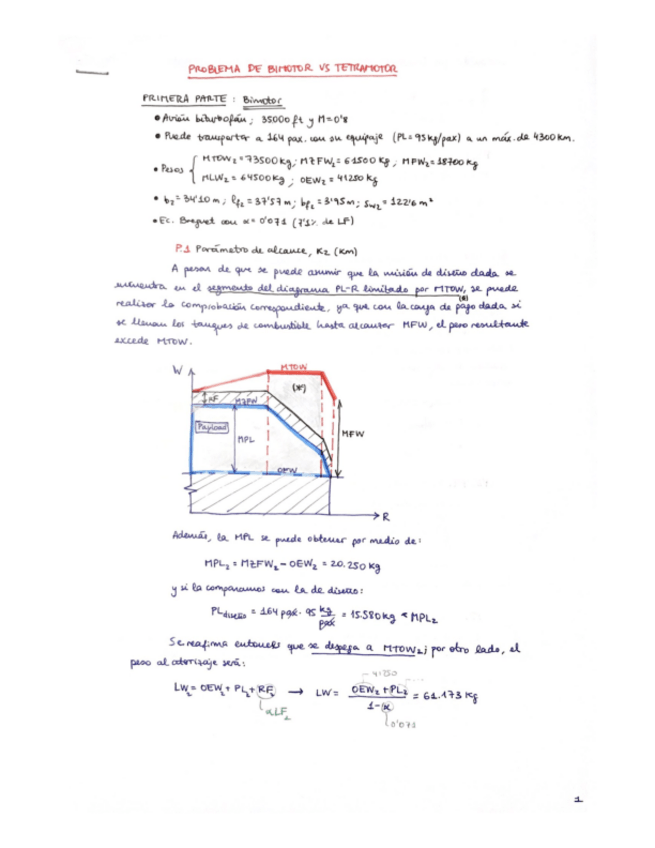 PROBLEMA DE BIMOTOR VS TETRAMOTOR
PRIMERA PARTE : Bimotor
• Avión biturbofán ; 35000 ft y M=0'8
• Puede transportar a 164 pax. con su equipaje (PL=95kg/pax) a un máx. de 4300 km.
• Pesos { MTOW₂=73500kg ; MZFW₂=61500 kg ; MFW₂=18700 kg
MLW₂=64500kg ; OEW₂=41250 kg
• b₂=34'10 m ; lf₂=37'57 m ; bf₂=3'95m ; Sw₂=122'6 m²
• Ec. Breguet con α=0'071 (7'1% de LF)
P.1 Parámetro de alcance, K₂ (km)
A pesar de que se puede asumir que la misión de diseño dada se
encuentra en el segmento del diagrama PL-R limitado por MTOW, se puede
(*)
realizar la comprobación correspondiente, ya que con la carga de pago dada si
se llenan los tanques de combustible hasta alcanzar MFW, el peso resultante
excede MTOW.
W
MTOW
(*)
RF
MZFW
Payload
MPL
MFW
OEW
R
Además, la MPL se puede obtener por medio de:
MPL₂ = MZFW₂ - OEW₂ = 20.250 kg
y si la comparamos con la de diseño:
PL diseño = 164 pax · 95 kg/pax = 15.580 kg < MPL₂
Se reafirma entonces que se despega a MTOW₂; por otro lado, el
peso al aterrizaje será:
41250
LW₂ = OEW₂ + PL₂ + RF₂ → LW = OEW₂ + PL₂ / 1-α = 61.173 kg
αLF₂
0'071
1